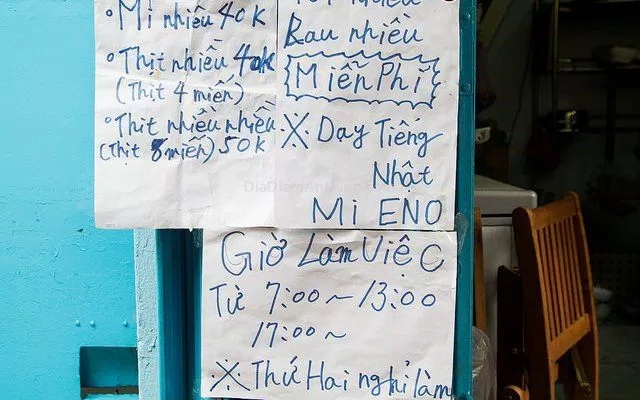 Mì nhiều 40k
Thịt nhiều 40k
(Thịt 4 miến)
Thịt nhiều nhiều
(Thịt 8 miến) 50k
nhiều
Rau nhiều
Miễn Phí
※ Dạy Tiếng
Nhật
Mì ENO
Giờ Làm Việc
Từ 7:00 ~ 13:00
17:00 ~
※ Thứ Hai nghỉ làm